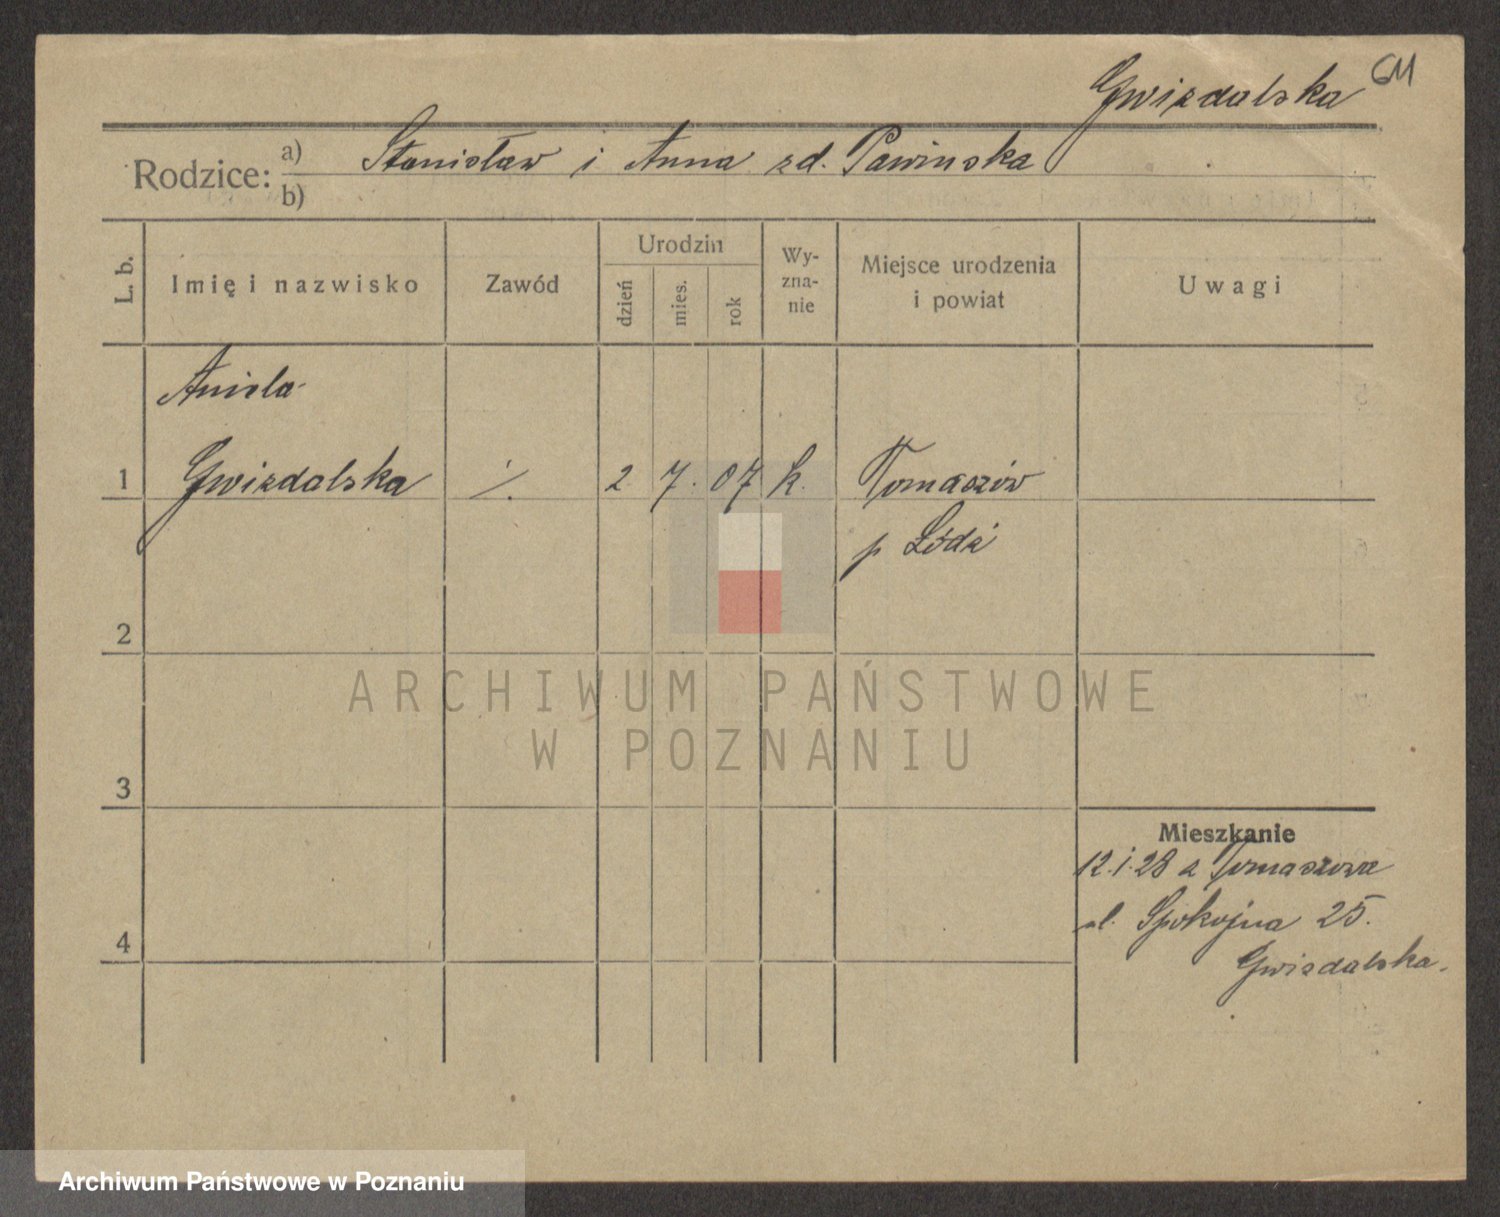 Gwizdalska 611
Rodzice: a) Stanisław i Anna zd. Pawinska
b)
L. b. Imię i nazwisko Zawód Urodzin dzień mies. rok Wy-zna-nie Miejsce urodzenia i powiat Uwagi
Aniela
1 Gwizdalska ·/. 2 7. 07 k. Tomaszów
p Łódź
2
ARCHIWUM PAŃSTWOWE
W POZNANIU
3
Mieszkanie
12.1.28 z Tomaszowa
ul. Spokojna 25.
4
Gwizdalska.
Archiwum Państwowe w Poznaniu